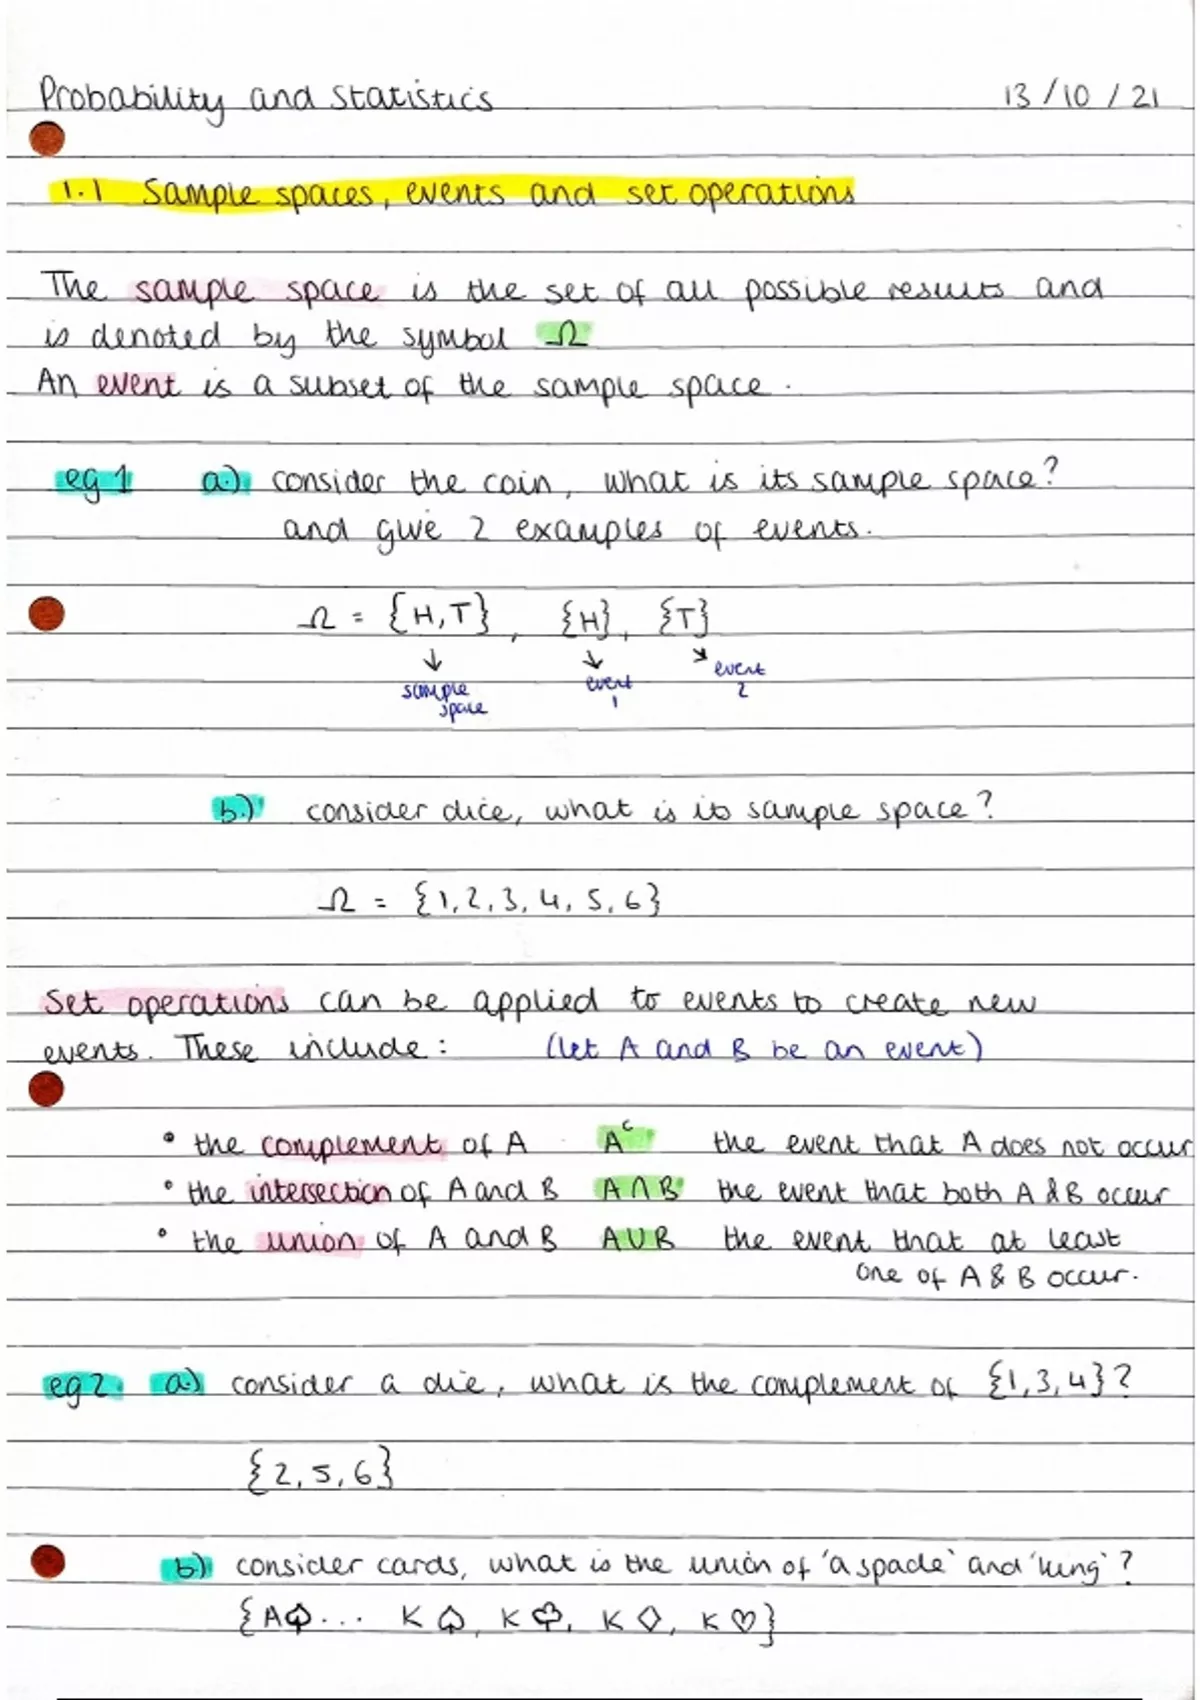 Probability and Statistics 13/10/21
1.1 Sample spaces, events and set operations
The sample space is the set of all possible results and
is denoted by the symbol Ω
An event is a subset of the sample space.
eg 1 a.) consider the coin, what is its sample space?
and give 2 examples of events.
Ω = {H,T}, {H}, {T}
↓ ↓ ↘
sample space event 1 event 2
b.) consider dice, what is its sample space?
Ω = {1,2,3,4,5,6}
Set operations can be applied to events to create new
events. These include: (let A and B be an event)
• the complement of A Aᶜ the event that A does not occur
• the intersection of A and B A∩B the event that both A & B occur
• the union of A and B A∪B the event that at least
one of A & B occur.
eg 2. a.) consider a die, what is the complement of {1,3,4}?
{2,5,6}
b.) consider cards, what is the union of 'a spade' and 'king'?
{A♤... K♤, K♧, K♢, K♡}